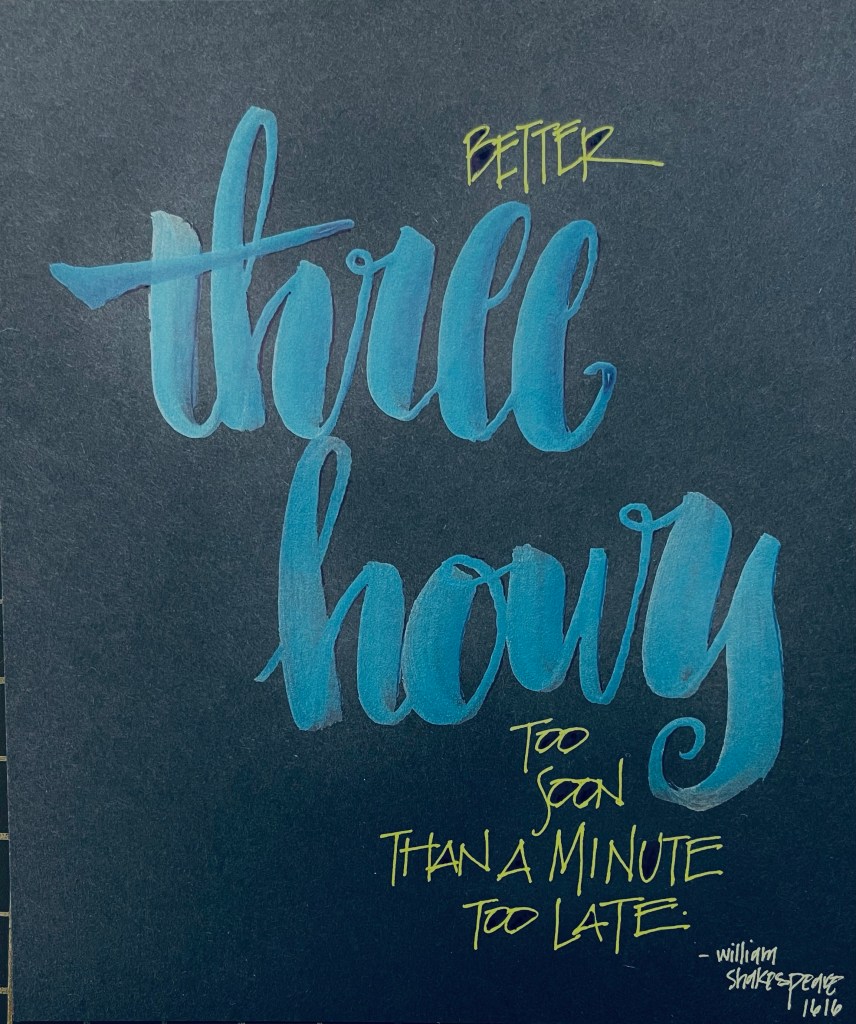 BETTER
three
hours
TOO
SOON
THAN A MINUTE
TOO LATE.
- william
shakespeare
1616